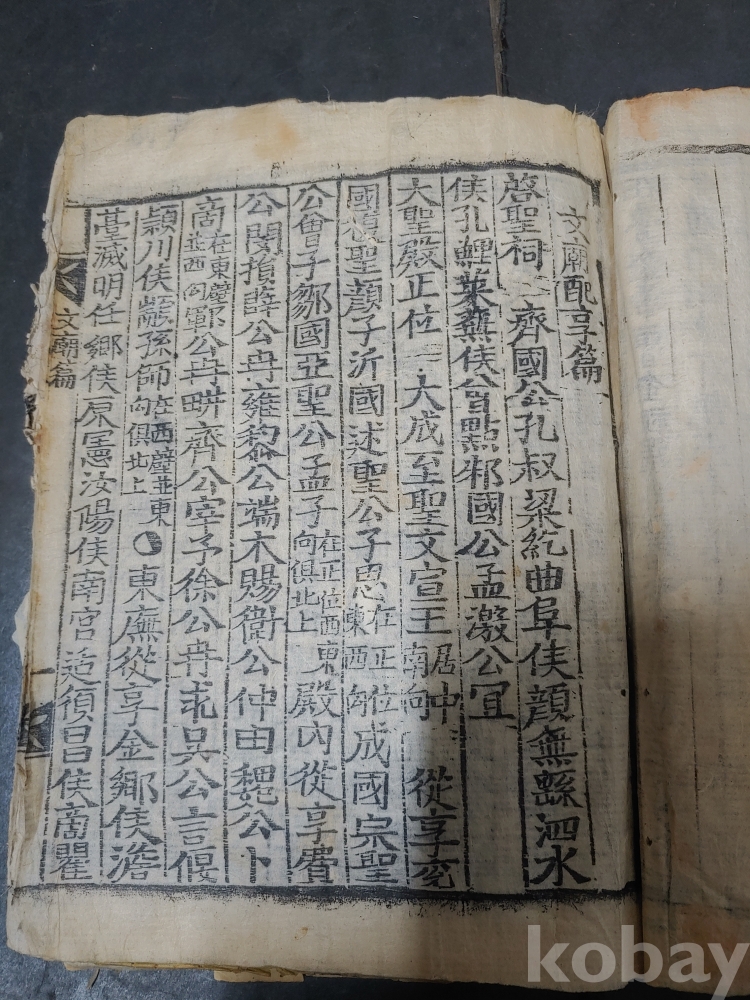 文廟配享篇
啓聖祠 齊國公孔叔梁紇曲阜侯顔無繇泗水
侯孔鯉萊蕪侯曾點邾國公孟激公宜
大聖殿正位 大成至聖文宣王居中南向 從享兗
國復聖顔子沂國述聖公子思在正位東西向成國宗聖
公曾子鄒國亞聖公孟子在正位西東向俱北上殿內從享費
公閔損薛公冉雍黎公端木賜衛公仲由魏公卜
商在東壁並西向鄆公冉畊齊公宰予徐公冉求吳公言偃
潁川侯顓孫師在西壁並東向俱北上 東廡從享金鄉侯澹
䑓滅明任鄉侯原憲汝陽侯南宮适須昌侯商瞿
文廟篇
一
kobay